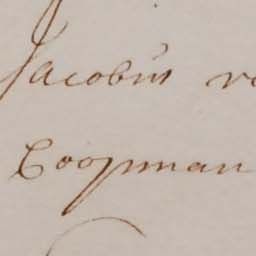 Jacobus
Coopman